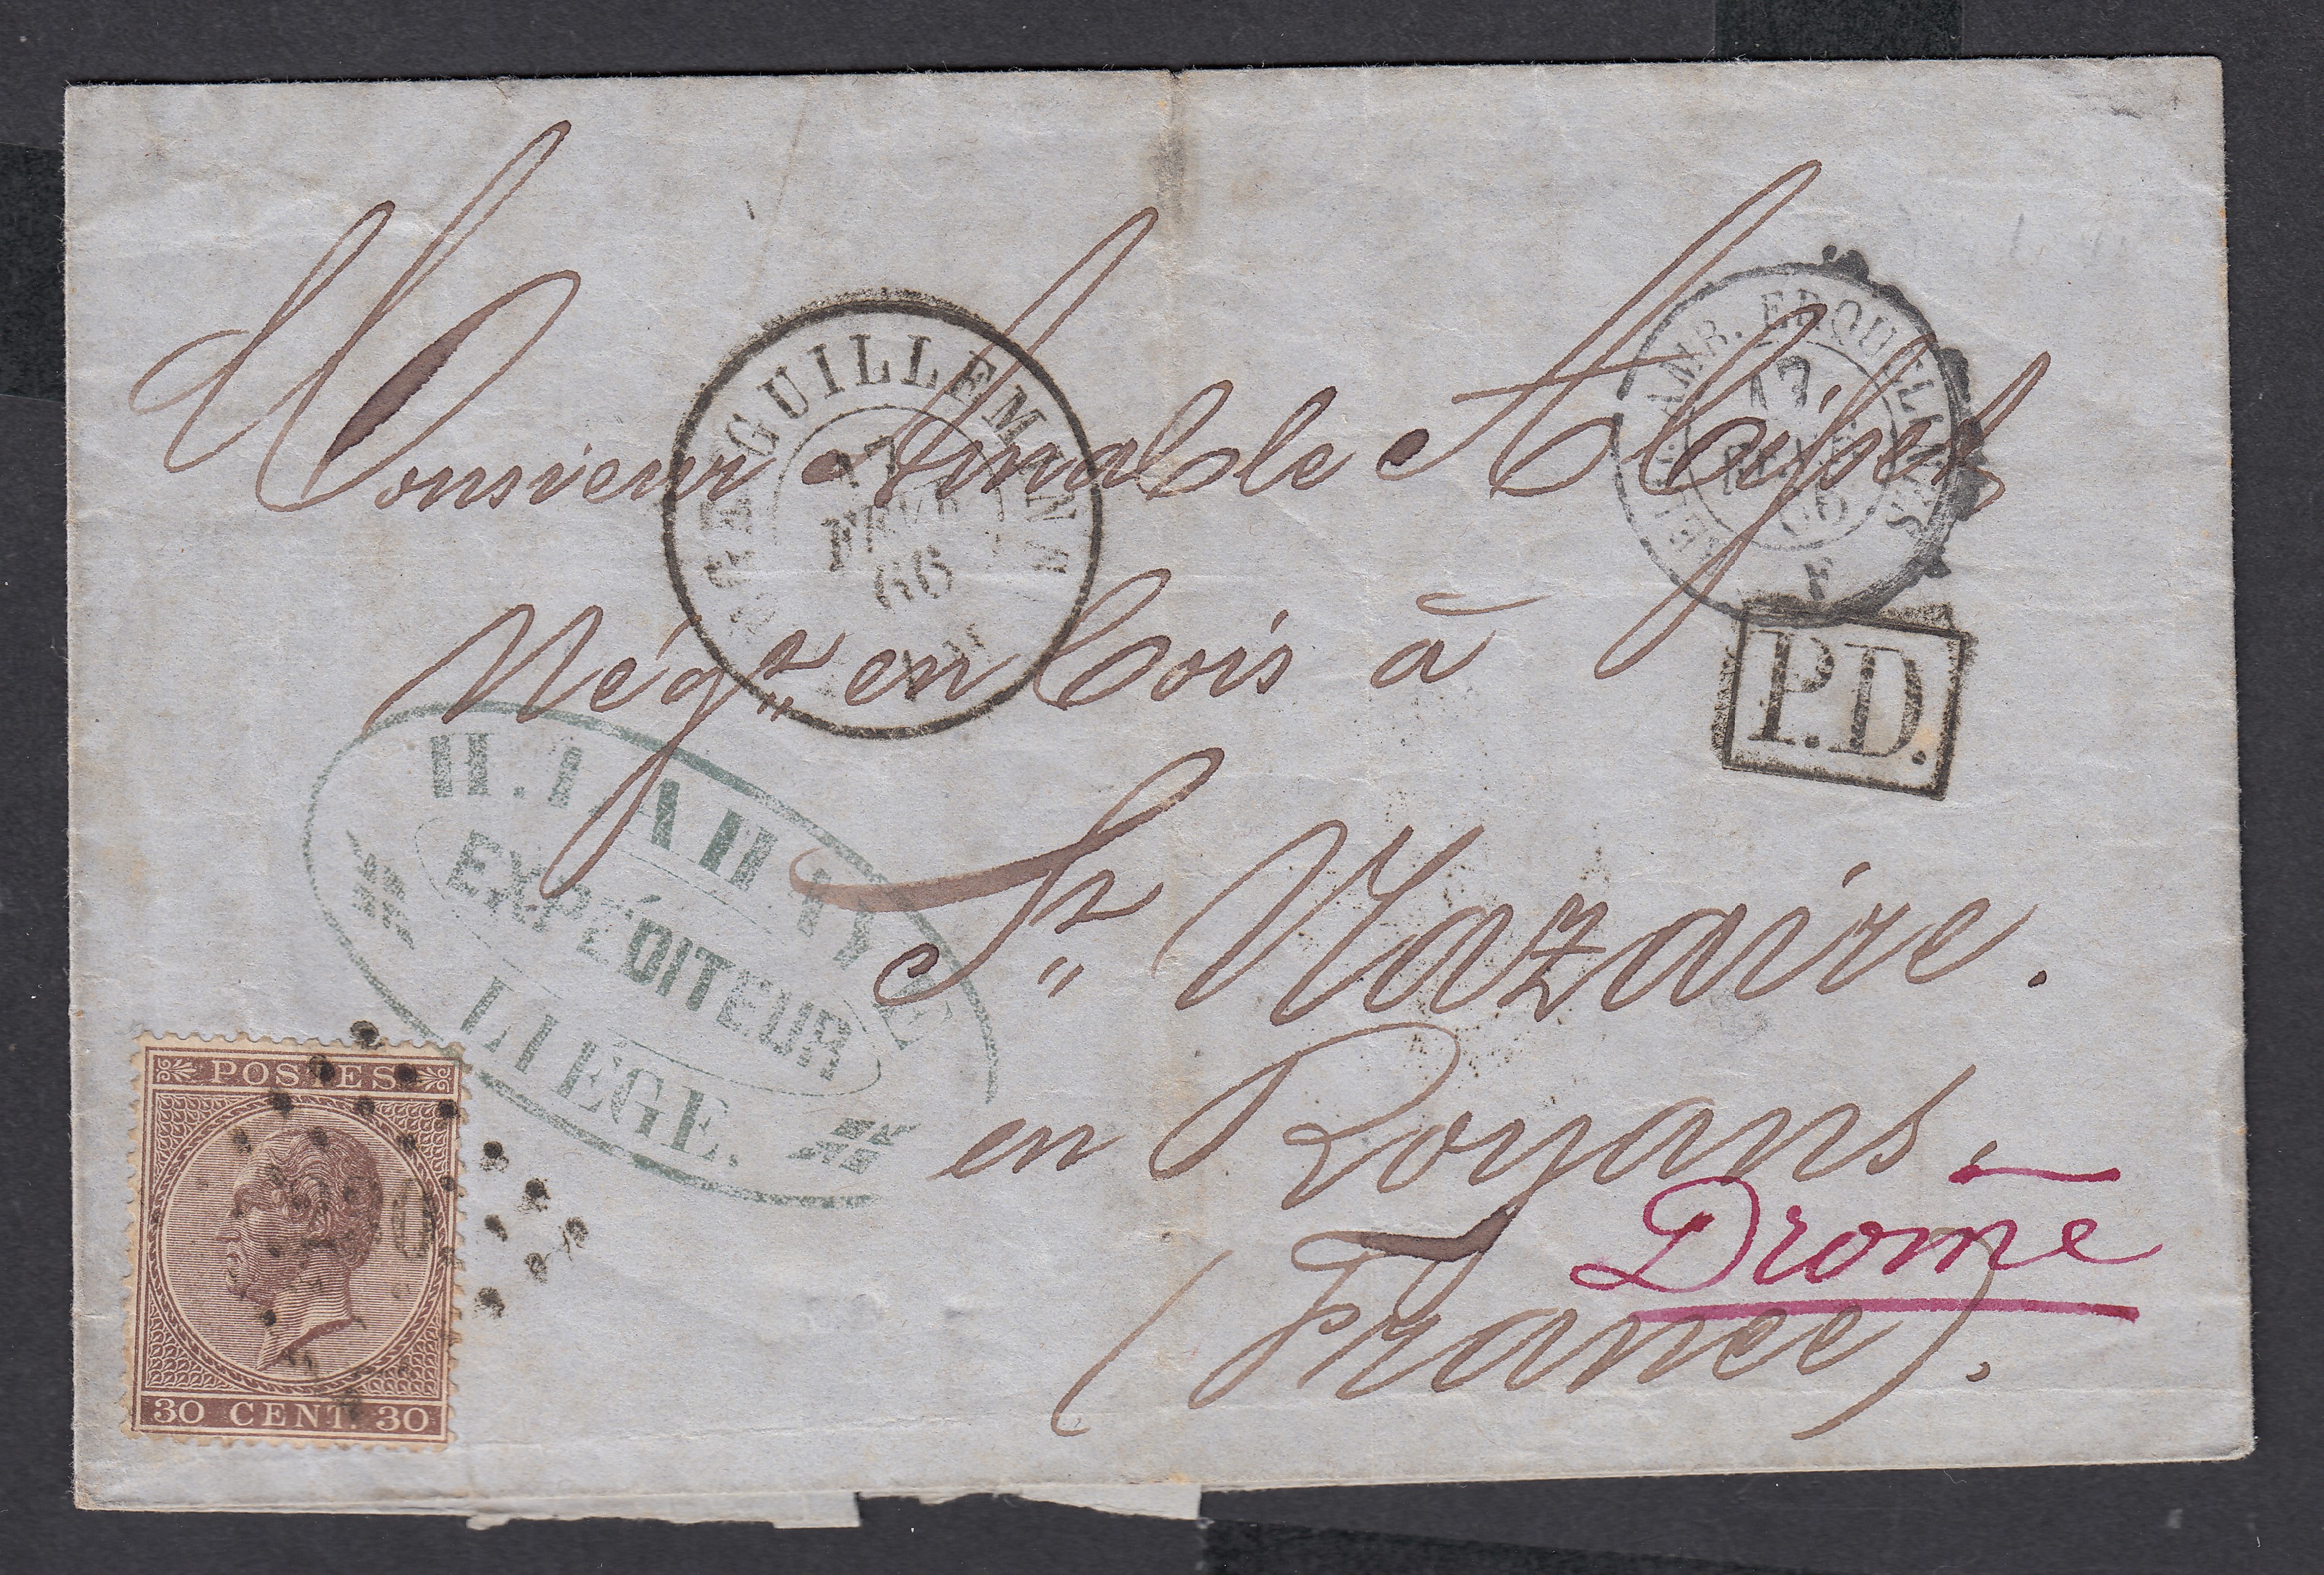 Monsieur Amable
Négt. en bois à
St. Nazaire.
en Royans.
Drome
(France).
GUILLEMINS
17
FEVR
66
AMB. ERQUELINES
17
66
F
P.D.
EXPÉDITEUR
LIEGE.
POSTES
30 CENT. 30